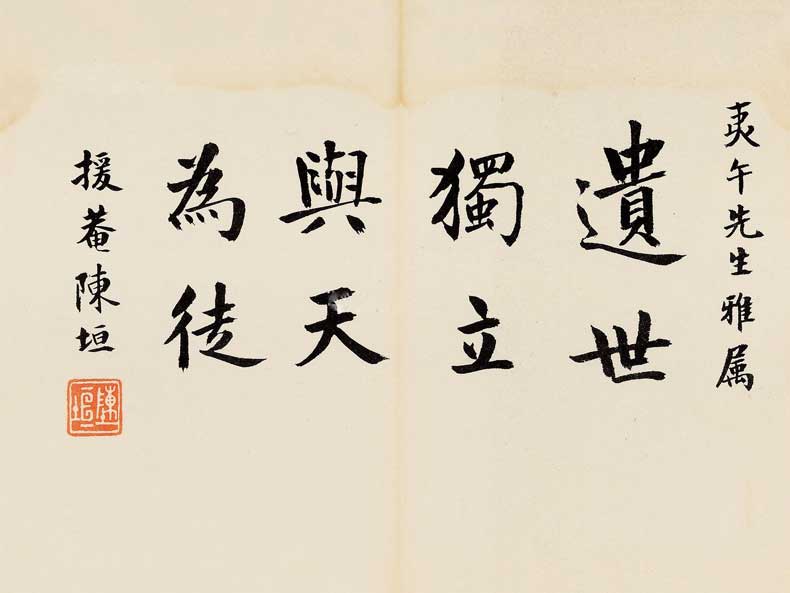 夷午先生雅属
遺世
獨立
與天
為徒
援菴陳垣
陳垣